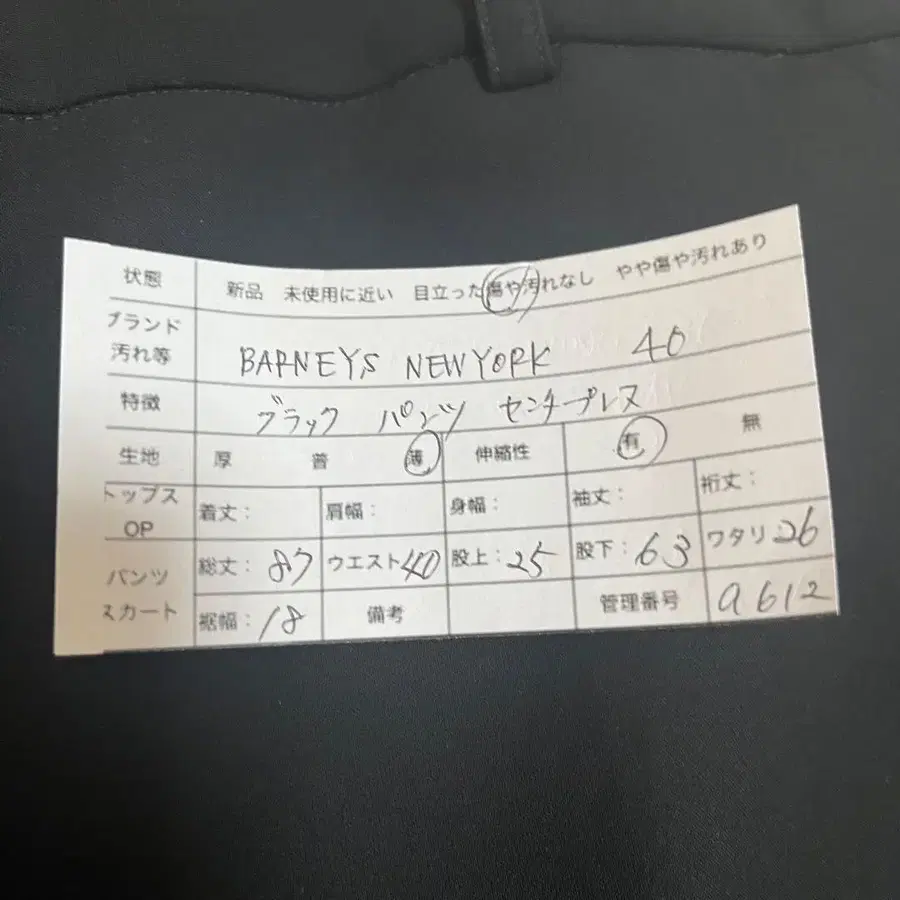 状態 新品 未使用に近い 目立った傷や汚れなし やや傷や汚れあり
ブランド
汚れ等 BARNEYS NEWYORK 40
特徴 ブラック パンツ センタープレス
生地 厚 普 薄 伸縮性 有 無
トップス
OP 着丈: 肩幅: 身幅: 袖丈: 裄丈:
パンツ
スカート
総丈: 87 ウエスト40 股上: 25 股下: 63 ワタリ:26
裾幅: 18 備考 管理番号 a612